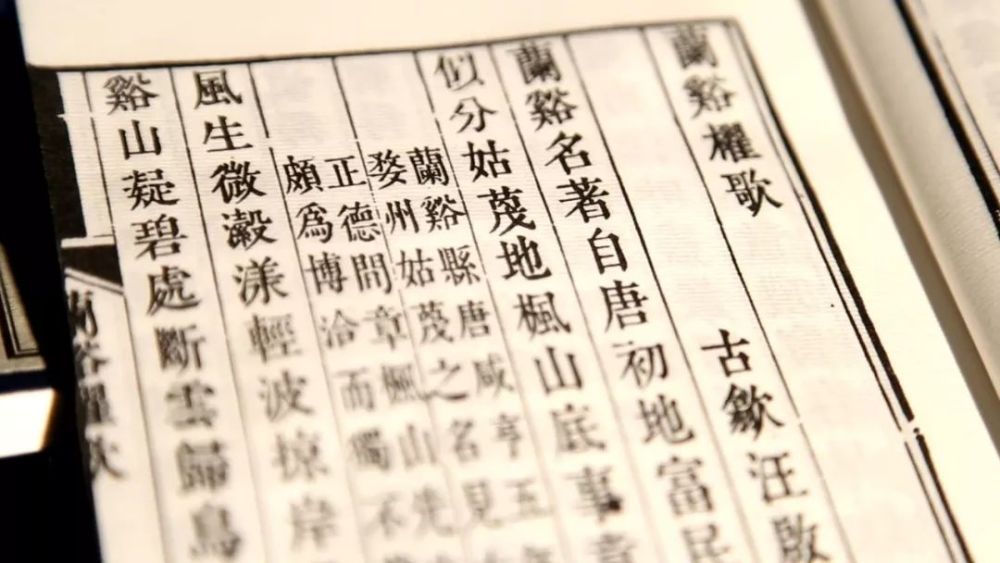 蘭谿櫂歌
古歙汪啟
蘭谿名著自唐初地富民
似分姑蔑地楓山底事
蘭谿縣唐咸亨五
婺州姑蔑之名見
正德間章楓山先
頗爲博洽而獨不
風生微瀫漾輕波掠岸
谿山凝碧處斷雲歸鳥
蘭谿櫂歌